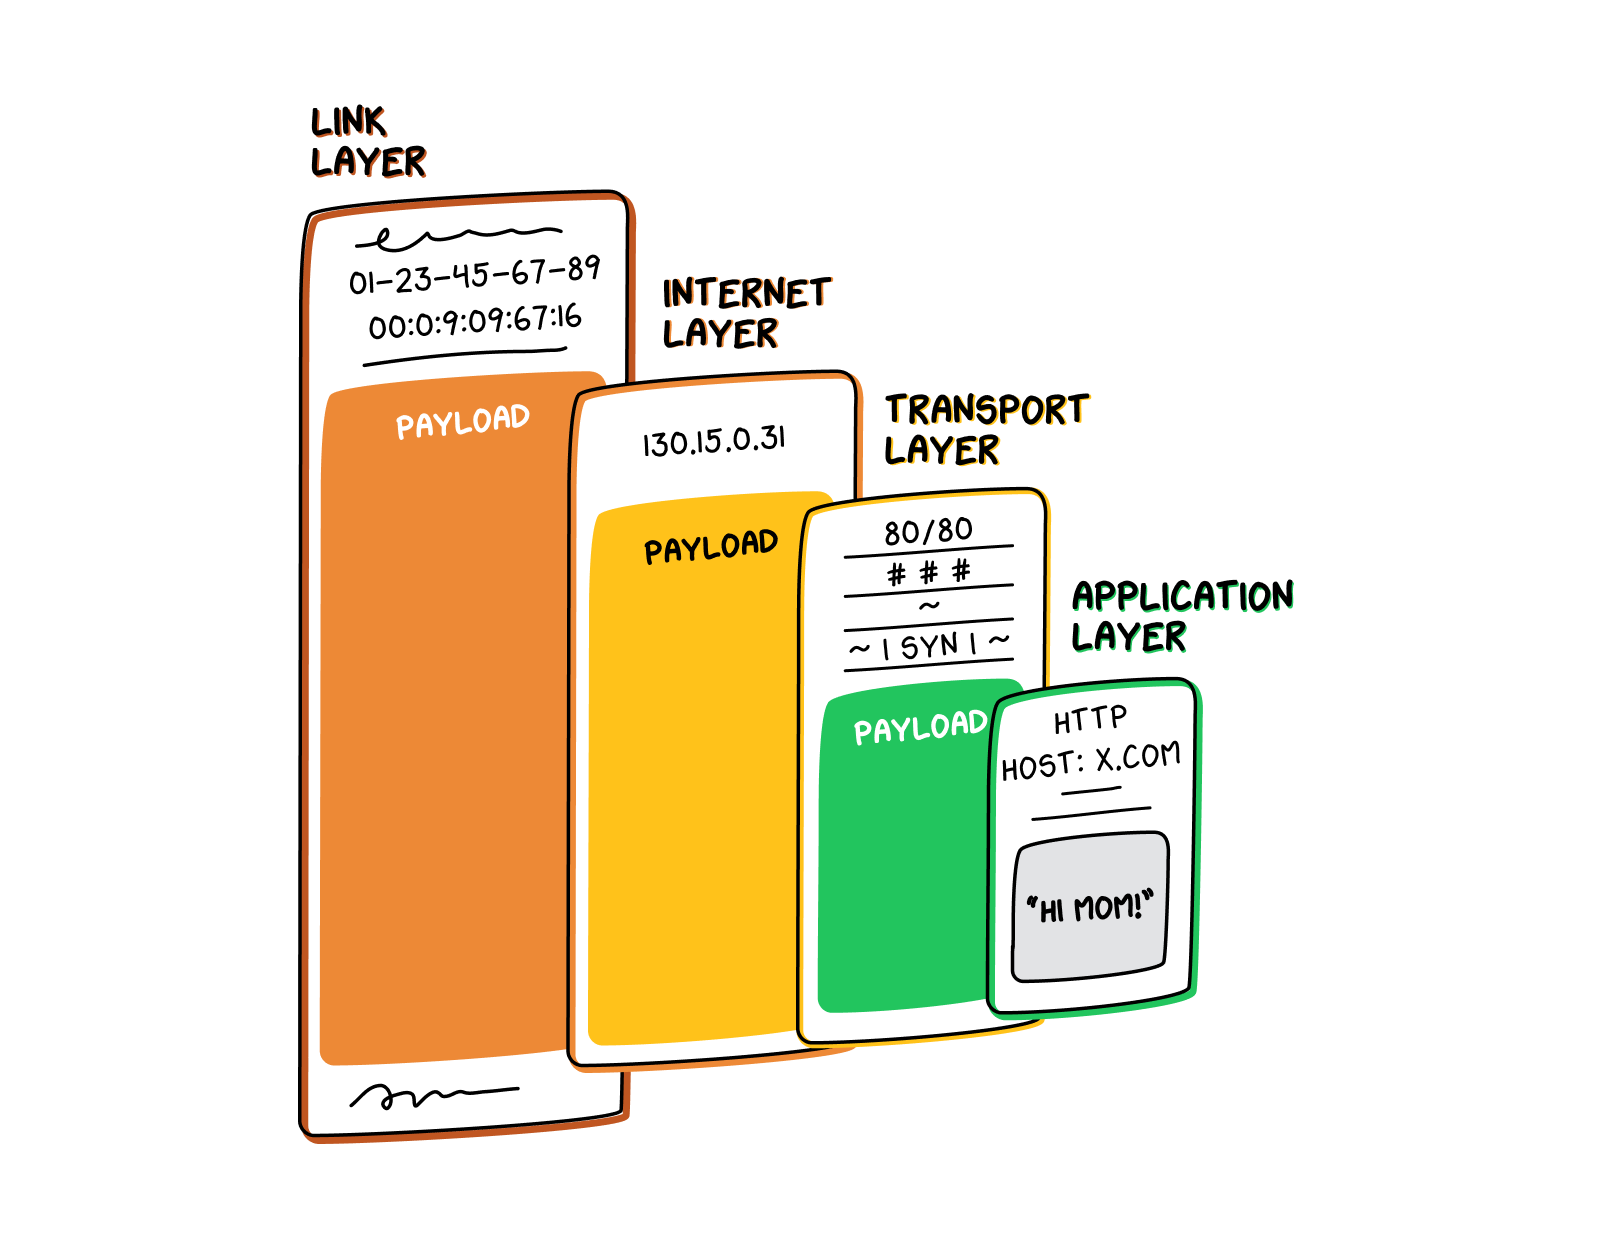 LINK
LAYER
01-23-45-67-89
00:0:9:09:67:16
PAYLOAD
INTERNET
LAYER
130.15.0.31
PAYLOAD
TRANSPORT
LAYER
80/80
# # #
~
~ | SYN | ~
PAYLOAD
APPLICATION
LAYER
HTTP
HOST: X.COM
“HI MOM!”